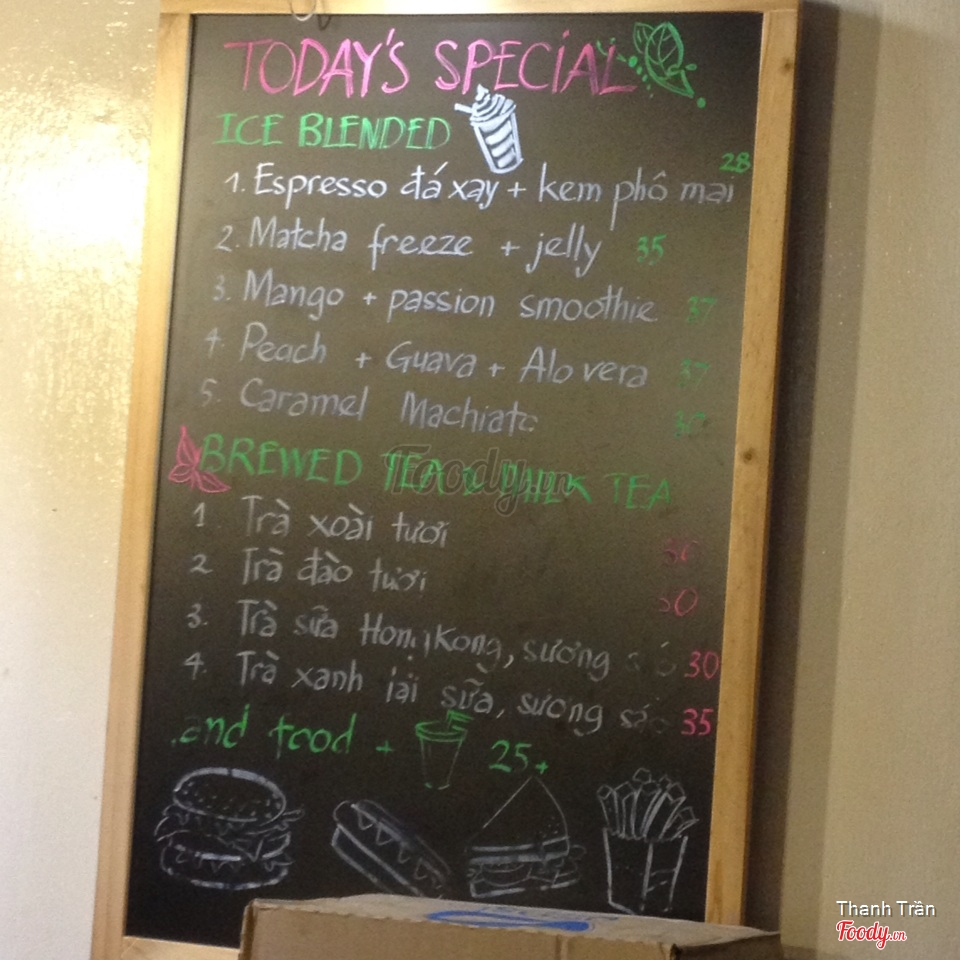 TODAY'S SPECIAL
ICE BLENDED
1. Espresso đá xay + kem phô mai 28
2. Matcha freeze + jelly 35
3. Mango + passion smoothie 37
4. Peach + Guava + Alo vera 37
5. Caramel Machiato
BREWED TEA & MILK TEA
1 Trà xoài tươi
2 Trà đào tươi
3. Trà sữa HongKong, sương 30
4. Trà xanh sữa, sương sáo 35
and food + 25+
Foody.vn
Thanh Trần
Foody.vn